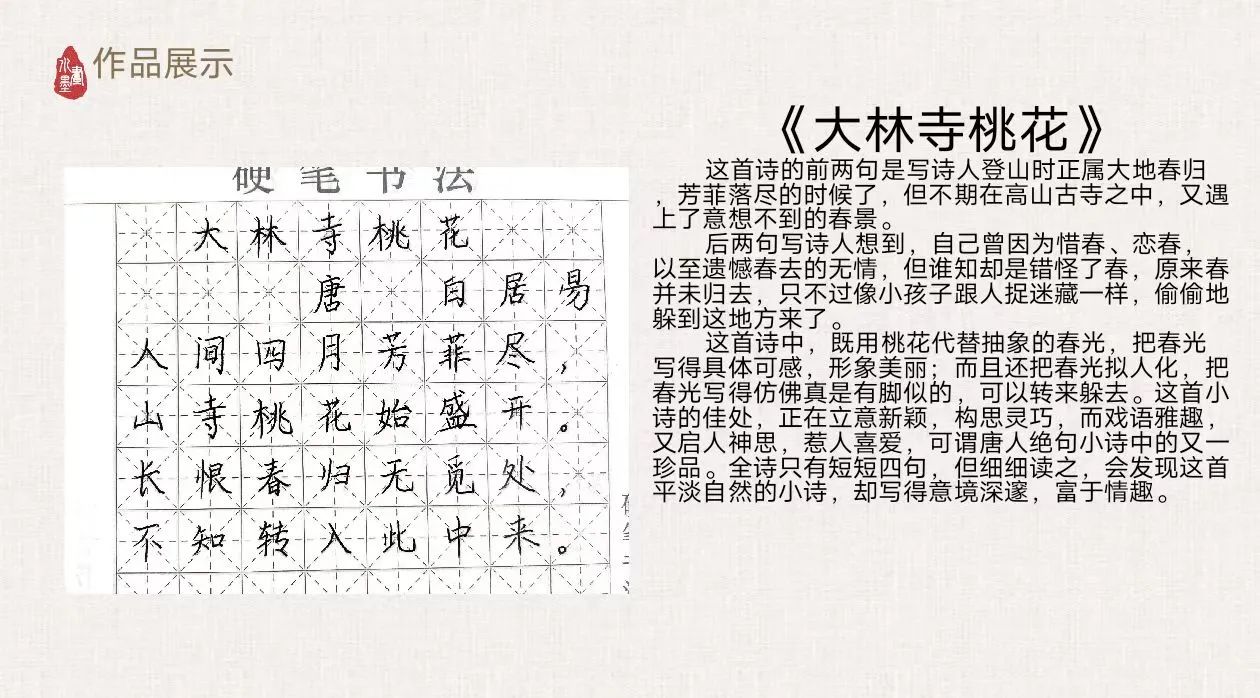 水墨畫
作品展示
硬笔书法
大林寺桃花
唐 白居易
人间四月芳菲尽，
山寺桃花始盛开。
长恨春归无觅处，
不知转入此中来。
《大林寺桃花》
这首诗的前两句是写诗人登山时正属大地春归
，芳菲落尽的时候了，但不期在高山古寺之中，又遇
上了意想不到的春景。
后两句写诗人想到，自己曾因为惜春、恋春，
以至遗憾春去的无情，但谁知却是错怪了春，原来春
并未归去，只不过像小孩子跟人捉迷藏一样，偷偷地
躲到这地方来了。
这首诗中，既用桃花代替抽象的春光，把春光
写得具体可感，形象美丽；而且还把春光拟人化，把
春光写得仿佛真是有脚似的，可以转来躲去。这首小
诗的佳处，正在立意新颖，构思灵巧，而戏语雅趣，
又启人神思，惹人喜爱，可谓唐人绝句小诗中的又一
珍品。全诗只有短短四句，但细细读之，会发现这首
平淡自然的小诗，却写得意境深邃，富于情趣。